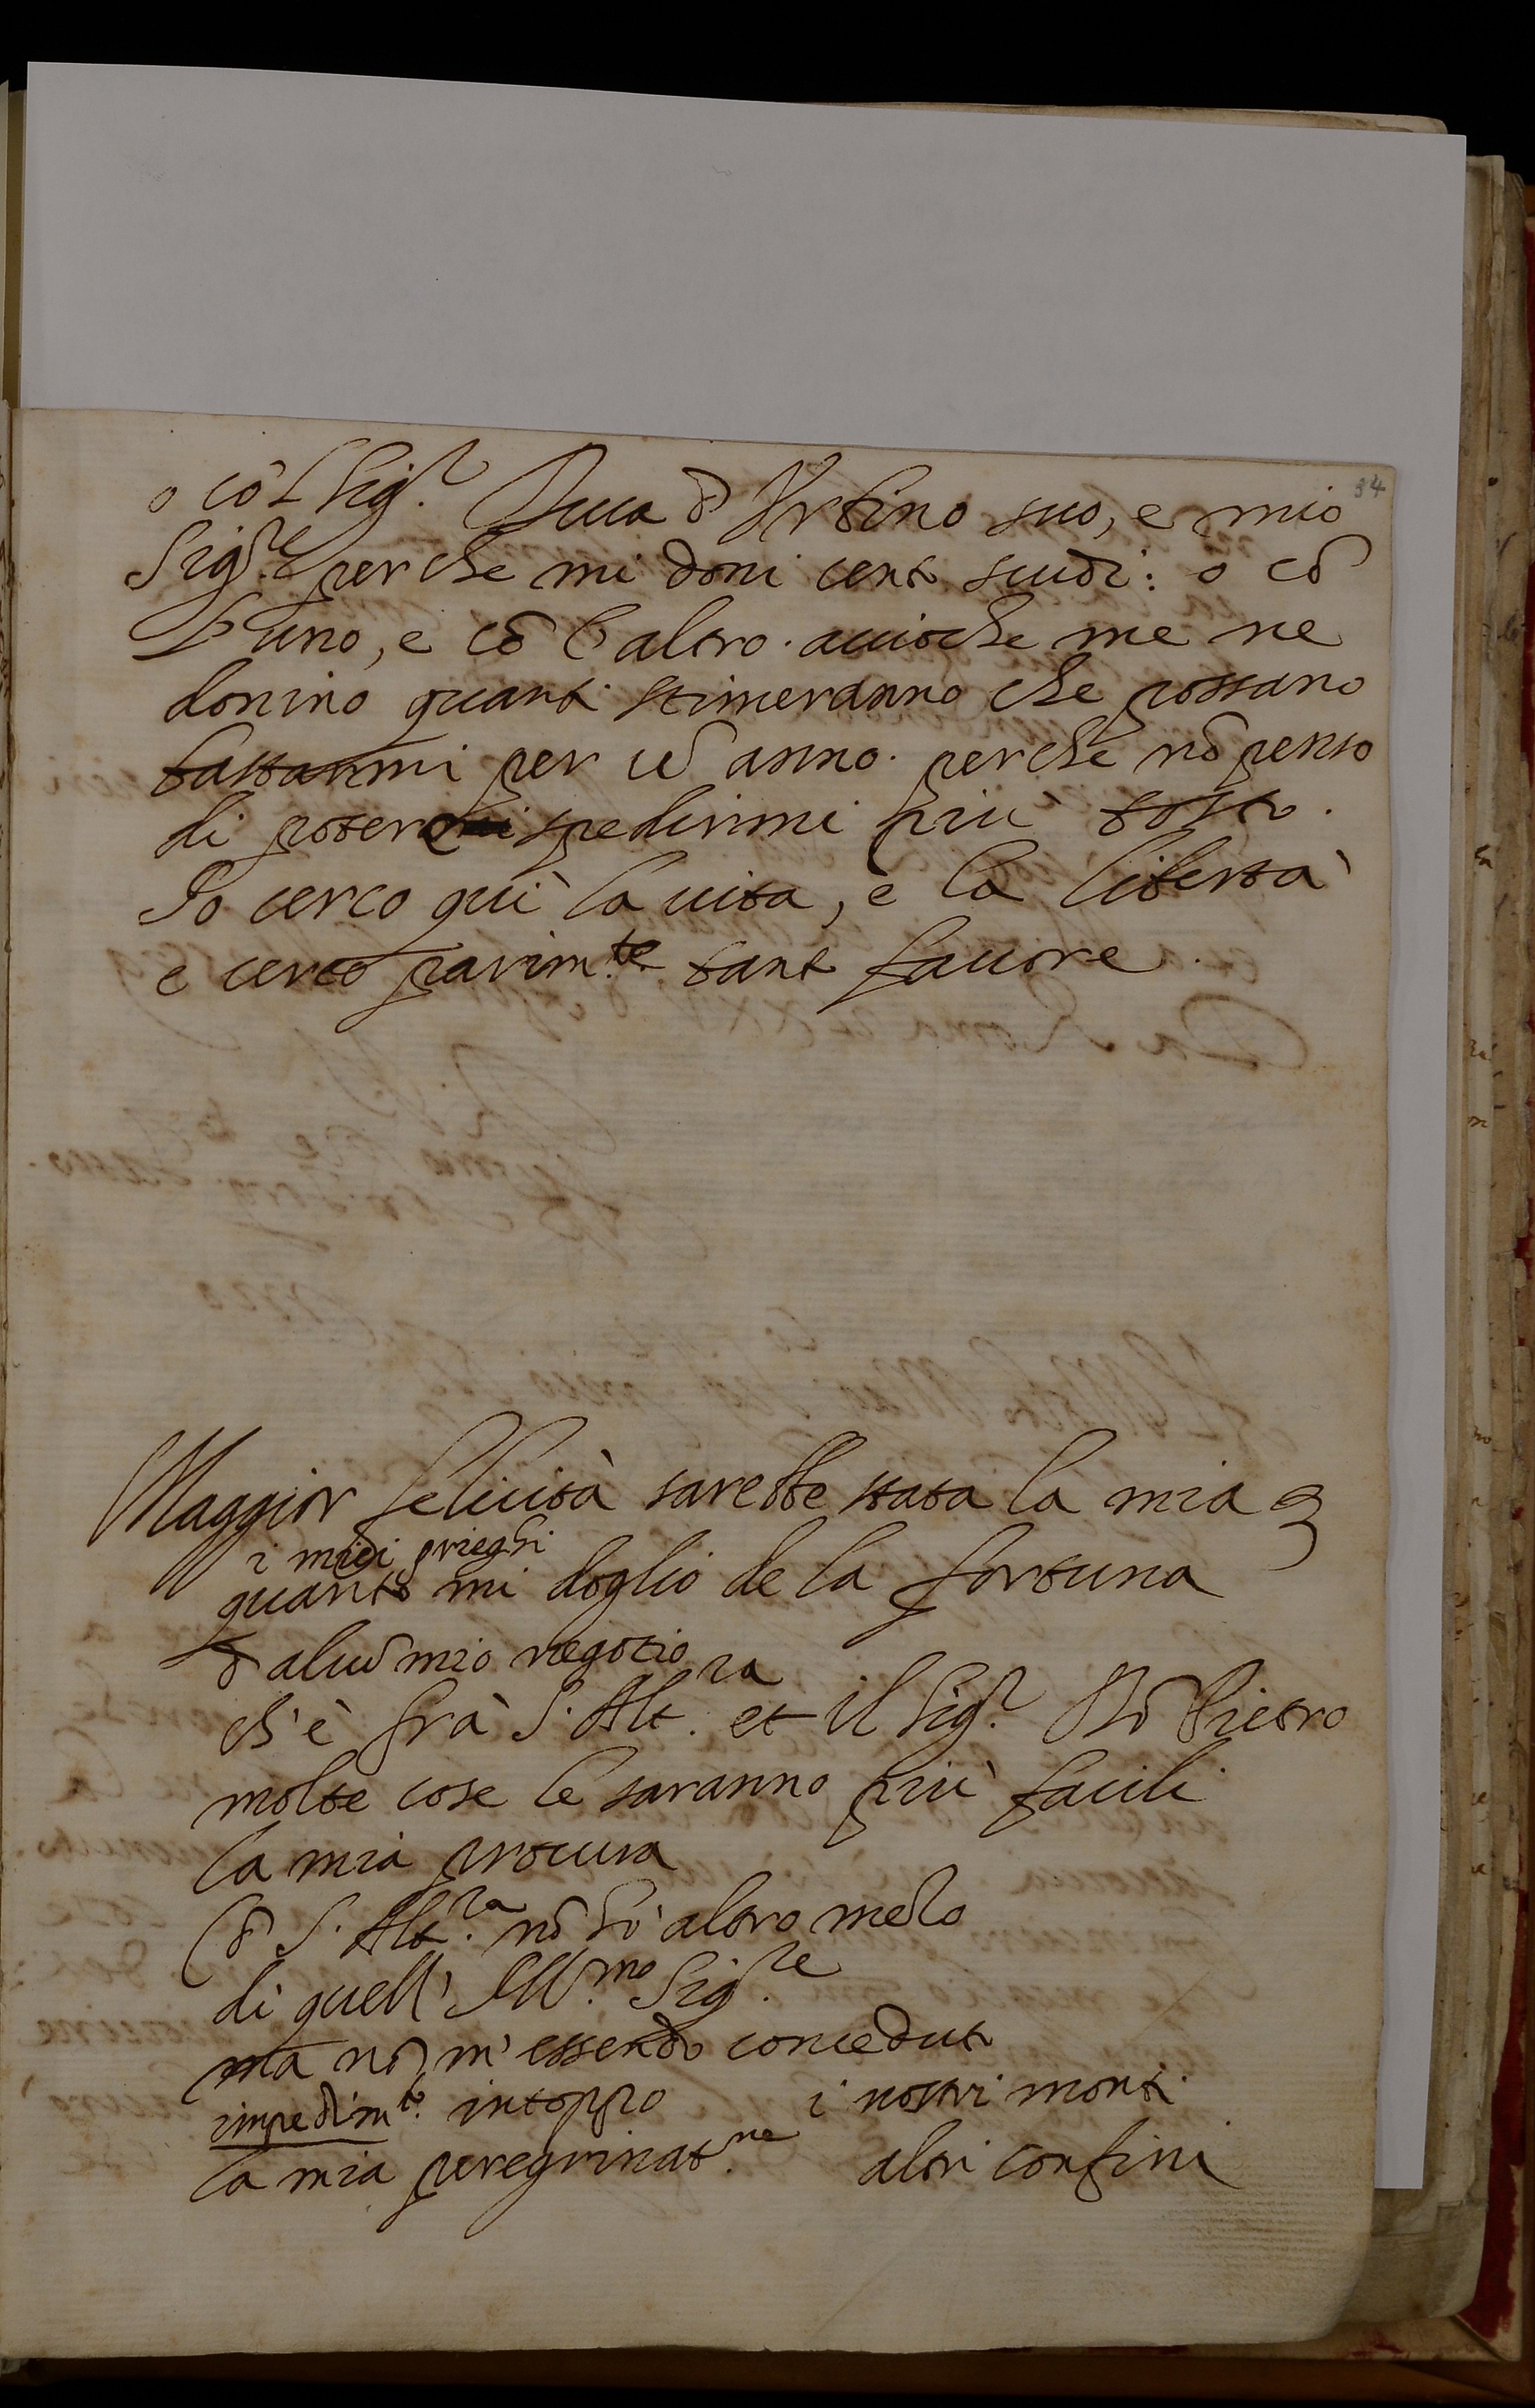 34
o cõ l Sig.r Duca d' Urbino suo, e mio
Sig.re perche mi doni cento scudi: o cõ
l' uno, e cõ l' altro. accioche me ne
donino quanti stimeranno che possano
bastarmi per ũ anno. perche nõ penso
di poter spedirmi più tosto.
Io cerco quì la vita, e la libertà
e cerco parim.te tanto favore.
Maggior felicità sarebbe stata la mia
i miei prieghi
quanto mi doglio de la fortuna
d' alcũ mio negotio
ch' è frà S. Alt.za et il Sig.r Dõ Pietro
molte cose le saranno più facili
la mia procura
Cõ S. Alt.za nõ hò altro mezo
di quell' Ill.mo Sig.re
ma nõ m' essendo conceduto
impedim.to intoppo i nostri monti
la mia peregrinat.ne altri confini